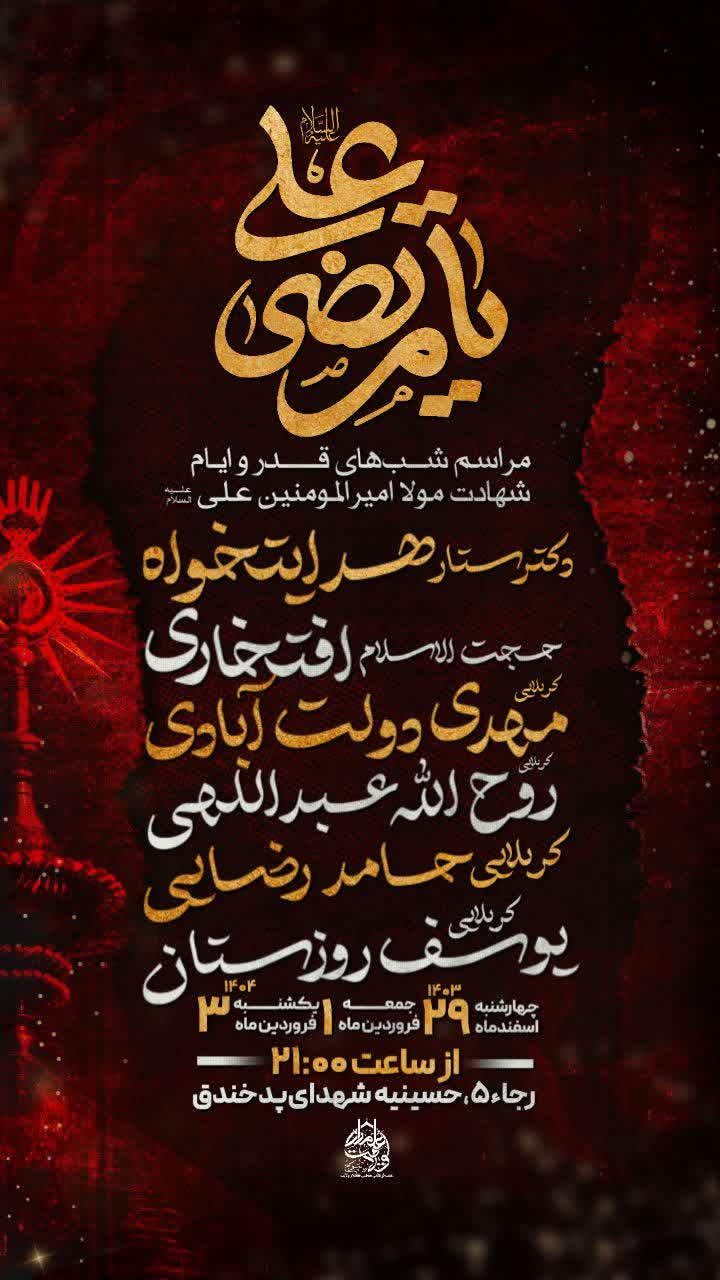 علیه السلام
یا مرتضی علی
مراسم شب‌های قدر و ایام
شهادت مولا امیرالمومنین علی علیه السلام
دکتر ستار هدایتخواه
حجت الاسلام افتخاری
کربلایی مهدی دولت آبادی
کربلایی روح الله عبداللهی
کربلایی حامد رضایی
کربلایی یوسف روزستان
چهارشنبه ۲۹ اسفندماه ۱۴۰۳ جمعه ۱ فروردین ماه یکشنبه ۳ فروردین ماه ۱۴۰۴
از ساعت ۲۱:۰۰
رجاء ۵، حسینیه شهدای پد خندق